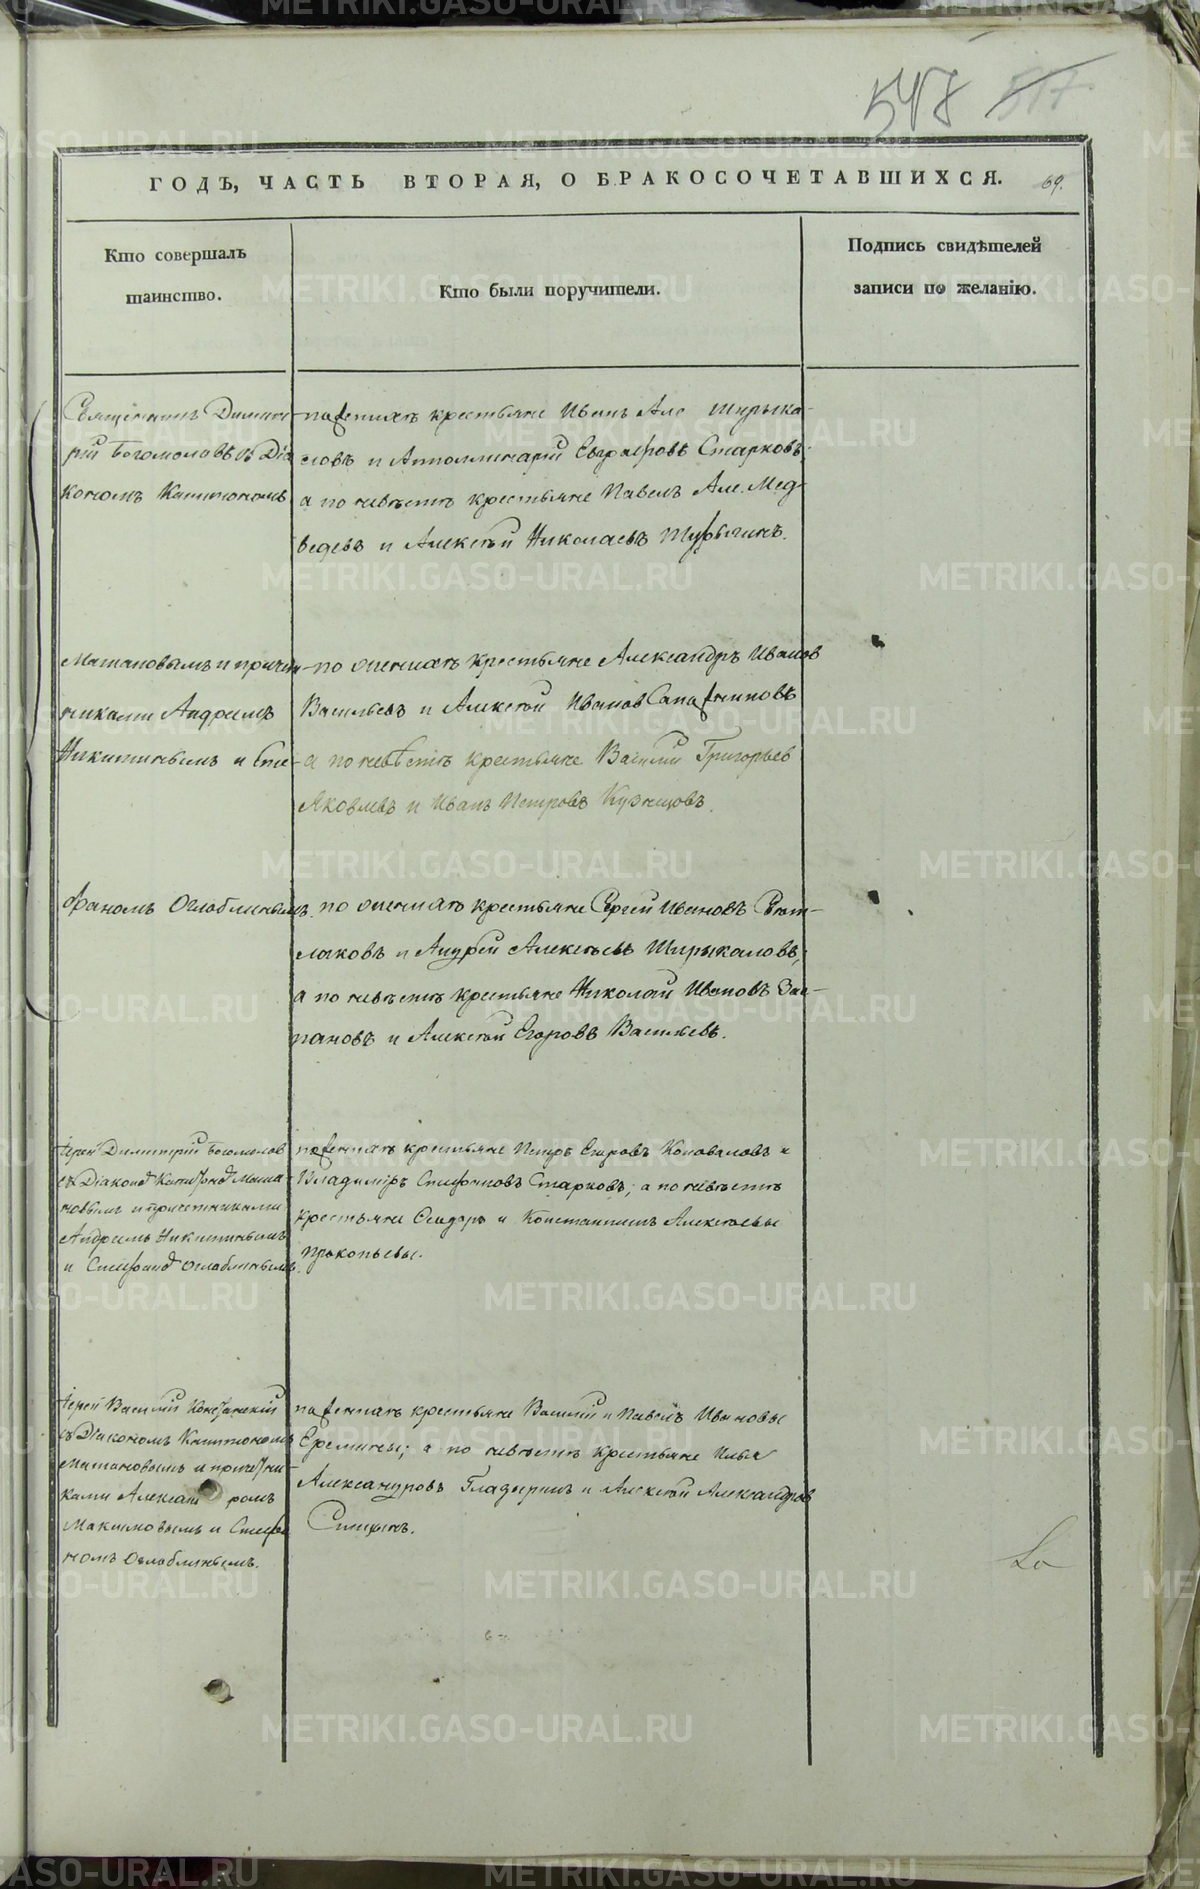 548 517
ГОДЪ, ЧАСТЬ ВТОРАЯ, О БРАКОСОЧЕТАВШИХСЯ. 69.
Кто совершалъ
таинство.
Кто были поручители.
Подпись свидѣтелей
записи по желанію.
Священникъ Димит-
рій Богомоловъ съ Діа
кономъ Капитономъ
по женихѣ крестьяне Иванъ Але Ширыка-
ловъ и Апполлинарій Евграфовъ Старковъ;
а по невѣстѣ крестьяне Павелъ Але. Мед-
ведевъ и Алексѣй Николаевъ
Матановымъ и причет-
никами Андреемъ
Никитинымъ и Сте-
по женихѣ крестьяне Александръ Иванов
Васильевъ и Алексѣй Иванов Сапожниковъ
а по невѣстѣ крестьяне Василій Григорьев
Яковлевъ и Иванъ Петровъ Кузнецовъ.
фаномъ Оглоблинымъ.
по женихѣ крестьяне Сергей Ивановъ Свѣт-
лаковъ и Андрей Алексѣевъ Ширыкаловъ;
а по невѣстѣ крестьяне Николай Ивановъ
пановъ и Алексѣй Егоровъ Васильевъ.
Іерей Димитрій Богомолов
съ Діакономъ Капитономъ Мата
новымъ и причетниками
Андреемъ Никитинымъ
и Стефаномъ Оглоблинымъ.
по женихѣ крестьяне Петръ Егоровъ Коноваловъ и
Владиміръ Стефановъ Старковъ; а по невѣстѣ
крестьяне Сидоръ и Константинъ Алексѣевы
Прокопьевы.
Іерей Василій
съ Діакономъ Капитономъ
Матановымъ и причетни-
ками Александромъ
Максимовымъ и Стефа
номъ Оглоблинымъ.
по женихѣ крестьяне Василій и Павелъ Ивановы
Еремины; а по невѣстѣ крестьяне Илья
Александровъ Гладыринъ и Алексѣй Александров
METRIKI.GASO-URAL.RU